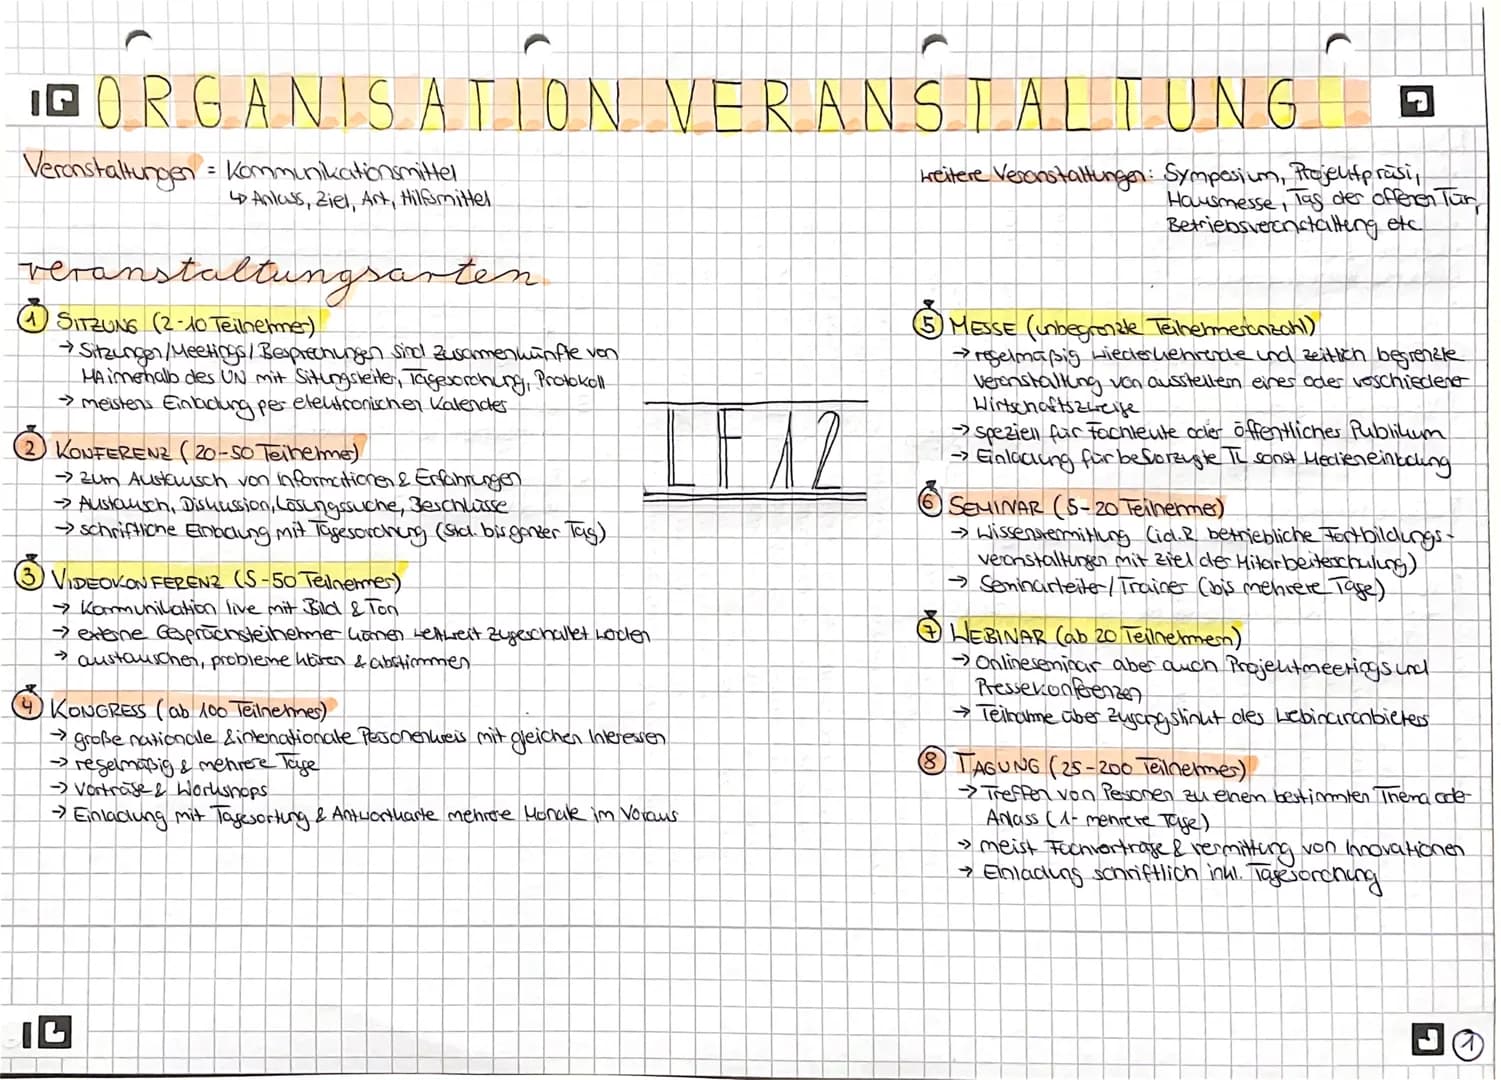 ORGANISATION VERANSTALTUNG
Veranstaltungen = Kommunikationsmittel
↳ Anlass, Ziel, Art, Hilfsmittel
weitere Veranstaltungen: Symposium, Projektpräsi,
Hausmesse, Tag der offenen Tür,
Betriebsveranstaltung etc.
veranstaltungsarten
① SITZUNG (2-10 Teilnehmer)
→ Sitzungen/Meetings/Besprechungen sind Zusammenkünfte von
MA innerhalb des UN mit Sitzungsleiter, Tagesordnung, Protokoll
→ meistens Einladung per elektronischen Kalender
② KONFERENZ (20-50 Teilnehmer)
→ zum Austausch von Informationen & Erfahrungen
→ Austausch, Diskussion, Lösungssuche, Beschlüsse
→ schriftliche Einladung mit Tagesordnung (Std. bis ganzer Tag)
③ VIDEOKONFERENZ (5-50 Teilnehmer)
→ Kommunikation live mit Bild & Ton
→ externe Gesprächsteilnehmer können weltweit zugeschaltet werden
→ austauschen, probleme klären & abstimmen
④ KONGRESS (ab 100 Teilnehmer)
→ große nationale & internationale Personenkreis mit gleichen Interessen
→ regelmäßig & mehrere Tage
→ Vorträge & Workshops
→ Einladung mit Tagesortung & Antwortkarte mehrere Monate im Voraus
LF 12
⑤ MESSE (unbegrenzte Teilnehmeranzahl)
→ regelmäßig wiederkehrende und zeitlich begrenzte
Veranstaltung von ausstellern eines oder verschiedener
Wirtschaftszweige
→ speziell für Fachleute oder öffentliches Publikum
→ Einladung für bevorzugte TL sonst Medieneinladung
⑥ SEMINAR (5-20 Teilnehmer)
→ Wissensvermittlung (i.d.R betriebliche Fortbildungs-
veranstaltungen mit Ziel der Mitarbeiterschulung)
→ Seminarleiter/Trainer (bis mehrere Tage)
⑦ WEBINAR (ab 20 Teilnehmern)
→ Onlineseminar aber auch Projektmeetings und
Pressekonferenzen
→ Teilnahme über Zugangslink des Webinaranbieters
⑧ TAGUNG (25-200 Teilnehmer)
→ Treffen von Personen zu einem bestimmten Thema oder
Anlass (1- mehrere Tage)
→ meist Fachvorträge & vermittlung von Innovationen
→ Einladung schriftlich inkl. Tagesordnung
①